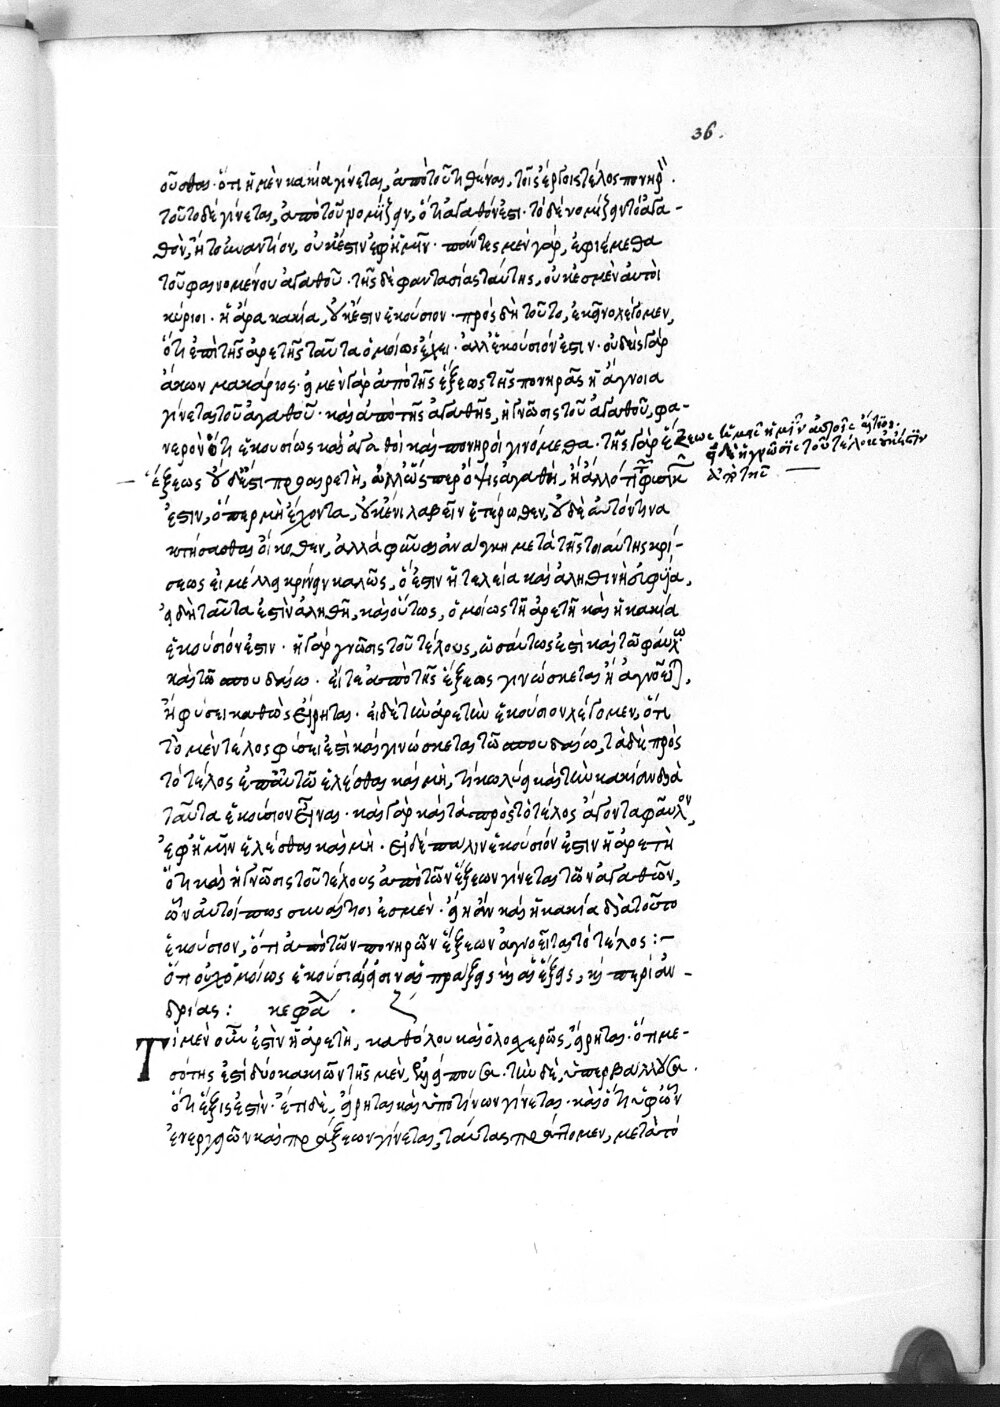 36.
οῦσθαι· ὅτι ἡ μὲν κακία γίνεται, ἀπὸ τοῦ τιθέναι, τοῖς ἔργοις τέλος πονηρ̀.
τοῦτο δὲ γίνεται, ἀπὸ τοῦ νομίζειν, ὅτι ἀγαθόν ἐστι· τὸ δὲ νομίζειν τὸ ἀγα-
θὸν, ἢ τὸ ἐναντίον, οὐκ ἔστιν ἐφ' ἡμῖν· πάντες μὲν γάρ, ἐφιέμεθα
τοῦ φαινομένου ἀγαθοῦ· τῆς δὲ φαντασίας ταύτης, οὐκ ἐσμὲν αὐτοὶ
κύριοι· ἡ ἄρα κακία, οὐκ ἔστιν ἑκούσιον· πρὸς δὴ τοῦτο, ἐκεῖνο λέγομεν,
ὅτι ἐπὶ τῆς ἀρετῆς ταῦτα ὁμοίως ἔχει· ἀλλ' ἑκούσιόν ἐστιν· οὐδεὶς γὰρ
ἄκων μακάριος· εἰ μὲν γὰρ ἀπὸ τῆς ἕξεως τῆς πονηρᾶς ἡ ἄγνοια
γίνεται τοῦ ἀγαθοῦ· καὶ ἀπὸ τῆς ἀγαθῆς, ἡ γνῶσις τοῦ ἀγαθοῦ, φα-
νερὸν ὅτι ἑκουσίως καὶ ἀγαθοὶ καὶ πονηροὶ γινόμεθα· τῆς γὰρ ἕξεως ἡμεῖς ἡμῖν αὐτοῖς αἴτιοι,
εἰ δὲ ἡ γνῶσις τοῦ τέλους οὐκ ἔστιν
ἀρετῆς
ἕξεως οὐδέ ἐστι προαιρετὴ, ἀλλ' ὥσπερ ὄψις ἀγαθὴ, ἢ ἄλλό τι φυσικ
ἐστιν, ὅπερ μὴ ἔχοντα, οὐκ ἔνι λαβεῖν ἑτέρωθεν, οὐδὲ αὐτόν τινα
κτήσασθαι οἴκοθεν, ἀλλὰ φῦναι ἀνάγκη μετὰ τῆς τοιαύτης κρί-
σεως εἰ μέλλει κρίνειν καλῶς, ὅ ἐστιν ἡ τελεία καὶ ἀληθινὴ εὐφυΐα,
εἰ δὴ ταῦτα ἐστὶν ἀληθῆ, καὶ οὕτως, ὁμοίως τῇ ἀρετῇ καὶ ἡ κακία
ἑκούσιόν ἐστιν· ἡ γὰρ γνῶσις τοῦ τέλους, ὡσαύτως ἐστὶ καὶ τῷ φαύλω
καὶ τῷ σπουδαίω· εἴτε ἀπὸ τῆς ἕξεως γινώσκεται ἢ ἀγνοεῖται,
ἢ φύσει καθὼς εἴρηται· εἰ δὲ τὴν ἀρετὴν ἑκούσιον λέγομεν, ὅτι
τὸ μὲν τέλος φύσει ἐστὶ καὶ γινώσκεται τῷ σπουδαίω, τὰ δὲ πρὸς
τὸ τέλος ἐπ' αὐτῷ ἑλέσθαι καὶ μὴ, τί κωλύει καὶ τὴν κακίαν διὰ
ταῦτα ἑκούσιον εἶναι· καὶ γὰρ καὶ τὰ πρὸς τὸ τέλος ἄγοντα φαῦλον,
ἐφ' ἡμῖν ἑλέσθαι καὶ μὴ· εἰ δὲ πάλιν ἑκούσιόν ἐστιν ἡ ἀρετὴ
ὅτι καὶ ἡ γνῶσις τοῦ τέλους ἀπὸ τῶν ἕξεων γίνεται τῶν ἀγαθῶν,
ὧν αὐτοί πως συναίτιοι ἐσμέν· εἴη ἂν καὶ ἡ κακία διὰ τοῦτο
ἑκούσιον, ὅτι ἀπὸ τῶν πονηρῶν ἕξεων ἀγνοεῖται τὸ τέλος :—
ὅτι οὐχ ὁμοίως ἑκούσιαί εἰσιν αἱ πράξεις καὶ αἱ ἕξεις, καὶ περὶ ἀν-
δρίας : κεφάλ. ζ
Τί μὲν οὖν ἐστὶν ἡ ἀρετὴ, καθόλου καὶ ὁλοχερῶς, εἴρηται· ὅτι με-
σότης ἐστὶ δύο κακιῶν τῆς μὲν, ἐλλειπούσης· τὴν δὲ, ὑπερβαλλούσης.
ὅτι ἕξις ἐστὶν· ἔτι δὲ, εἴρηται καὶ ὑπὸ τίνων γίνεται· καὶ ὅτι ὑφ' ὧν
ἐνεργειῶν καὶ πράξεων γίνεται, ταύτας πράττομεν, μετὰ τὸ